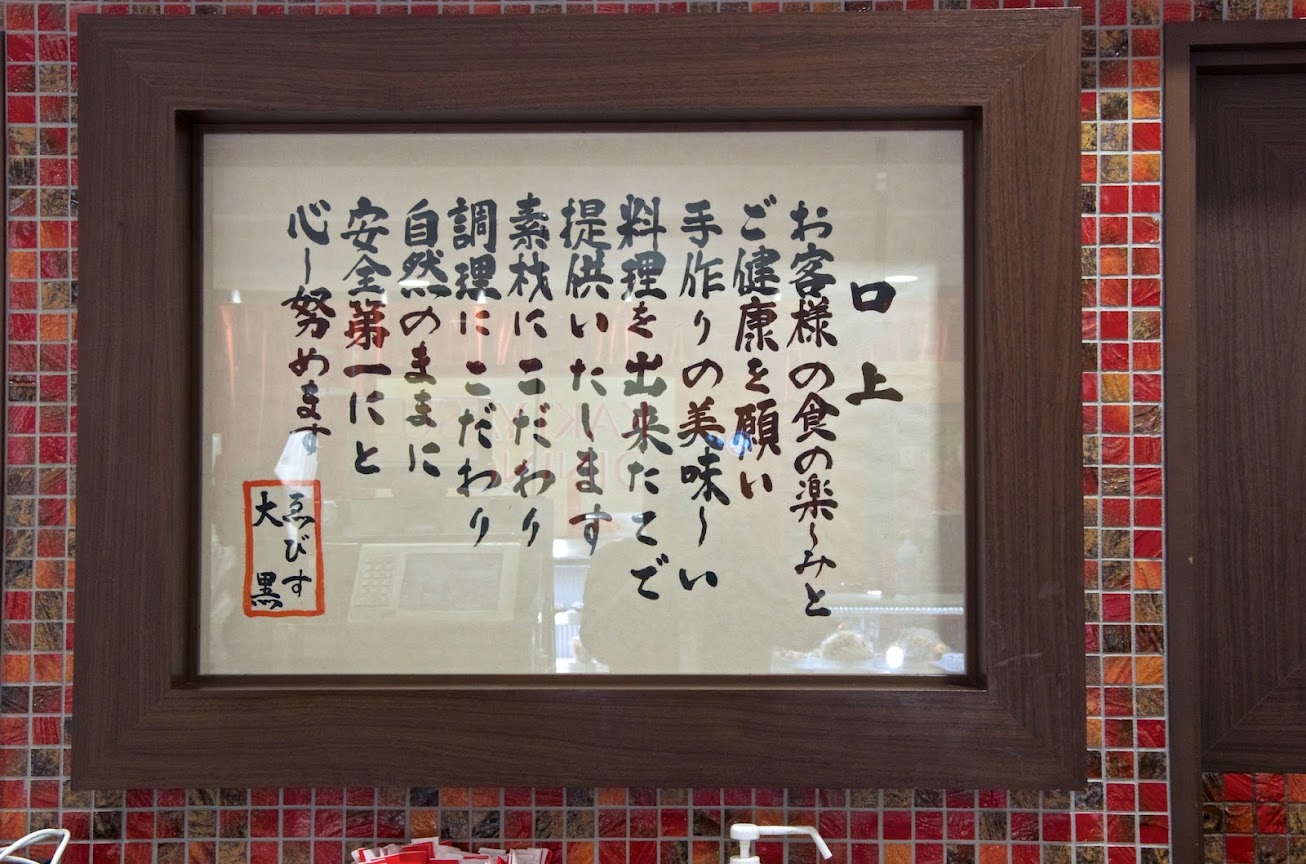 口上
お客様の食の楽しみと
ご健康を願い
手作りの美味しい
料理を出来たてで
提供いたします
素材にこだわり
調理にこだわり
自然のままに
安全第一にと
心し努めます
ゑびす
大黒